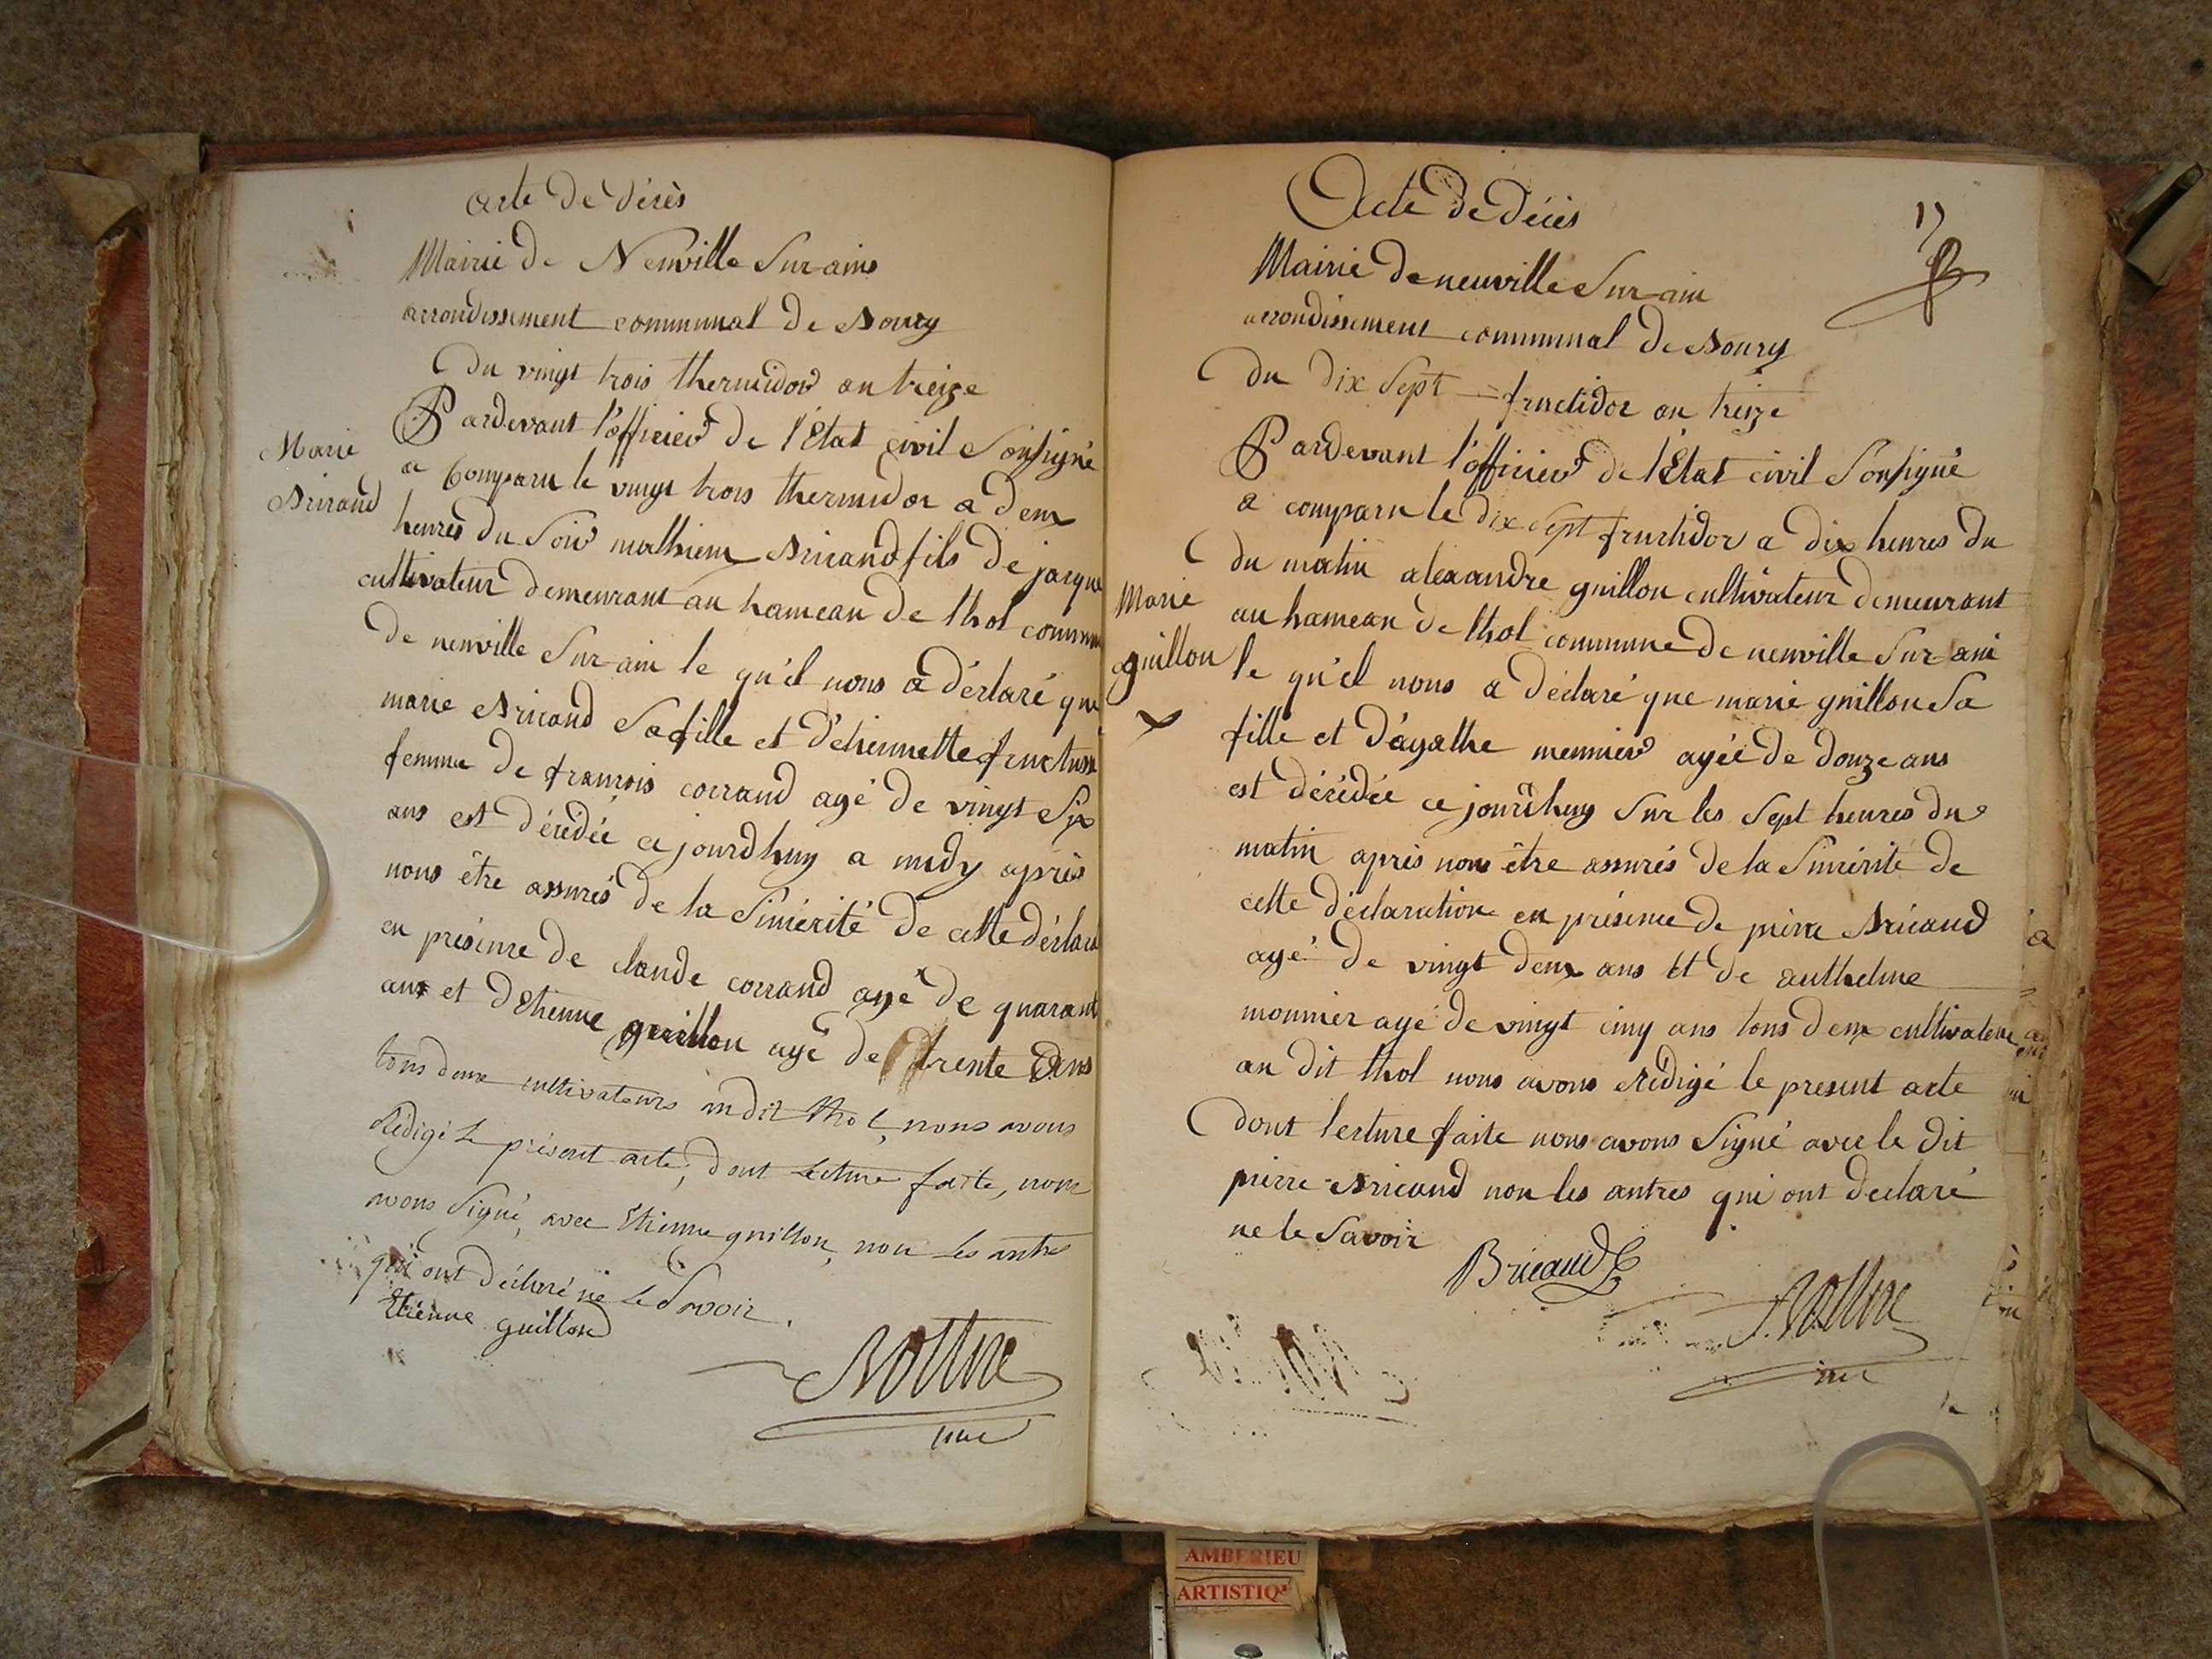 acte De Décès
Mairie De Neuville Sur ains
arrondissement communal De Bourg
Du vingt trois thermidor an treize
Pardevant l'officier de l'Etat civil Soussigné
a Comparu le vingt trois thermidor a Deux
heures Du Soir mathieu Bricand fils De jacque
cultivateur Demeurant au hameau De thol commune
De neuville Sur ain le qu'il nous a Déclaré que
marie Bricand Sa fille et D'etiennette
femme De francois corrand agé De vingt Six
ans est Décédée cejourdhuy a midy après
nous être assurés De la Sincérité De cette Déclara
en présence De claude corrand agé De quarante
ans et D'Etienne guillon agé De trente ans
tous deux cultivateurs audit thol, nous avons
Rédigé le présent acte, Dont lecture faite, nous
avons Signé, avec Etienne guillon, non les autres
qui ont Déclaré ne le Savoir.
Etienne guillon
maire
Marie
Bricand
Acte De Décès
17
Mairie De neuville Sur ain
arrondissement communal De Bourg
Du Dix Sept = fructidor an treize
Pardevant l'officier De l'Etat civil Soussigné
a comparu le Dix Sept fructidor a Dix heures Du
Du matin alexandre guillon cultivateur Demeurant
au hameau De thol commune De neuville Sur ain
le qu'il nous a Déclaré que marie guillon Sa
fille et D'agathe meunier agée De Douze ans
est Décédée ce jourdhuy Sur les Sept heures Du
matin après nous être assurés De la Sincérité De
cette Déclaration en présence De pierre Bricand
agé De vingt Deux ans et De anthelme
monnier agé De vingt cinq ans tous Deux cultivateur
au Dit thol nous avons Rédigé le present acte
Dont lecture faite nous avons Signé avec le Dit
pierre Bricand non les autres qui ont Déclaré
ne le Savoir
Bricand
maire
Marie
guillon
AMBERIEU
ARTISTIQ